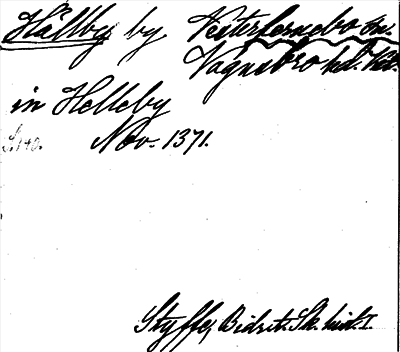 Hällby by Västerlövsta sn.
Vagnsbro hd. Vsl.
in Helleby
S. 140. Nov. 1371.
Styffe, Bidr. t. Sk. hist. I.